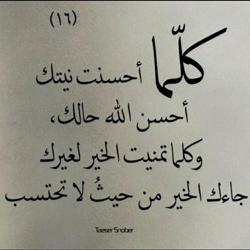 (١٦)
كلّما أحسنت نيتك
أحسن الله حالك،
وكلما تمنيت الخير لغيرك
جاءك الخير من حيثُ لا تحتسب
Taeser Snober